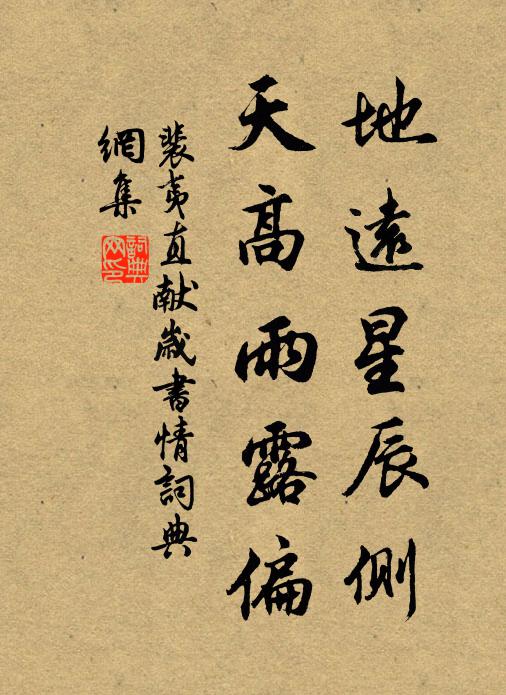 地遠星辰側
天高雨露偏
裴夷直献歲書情詞典
網集
詞典網印